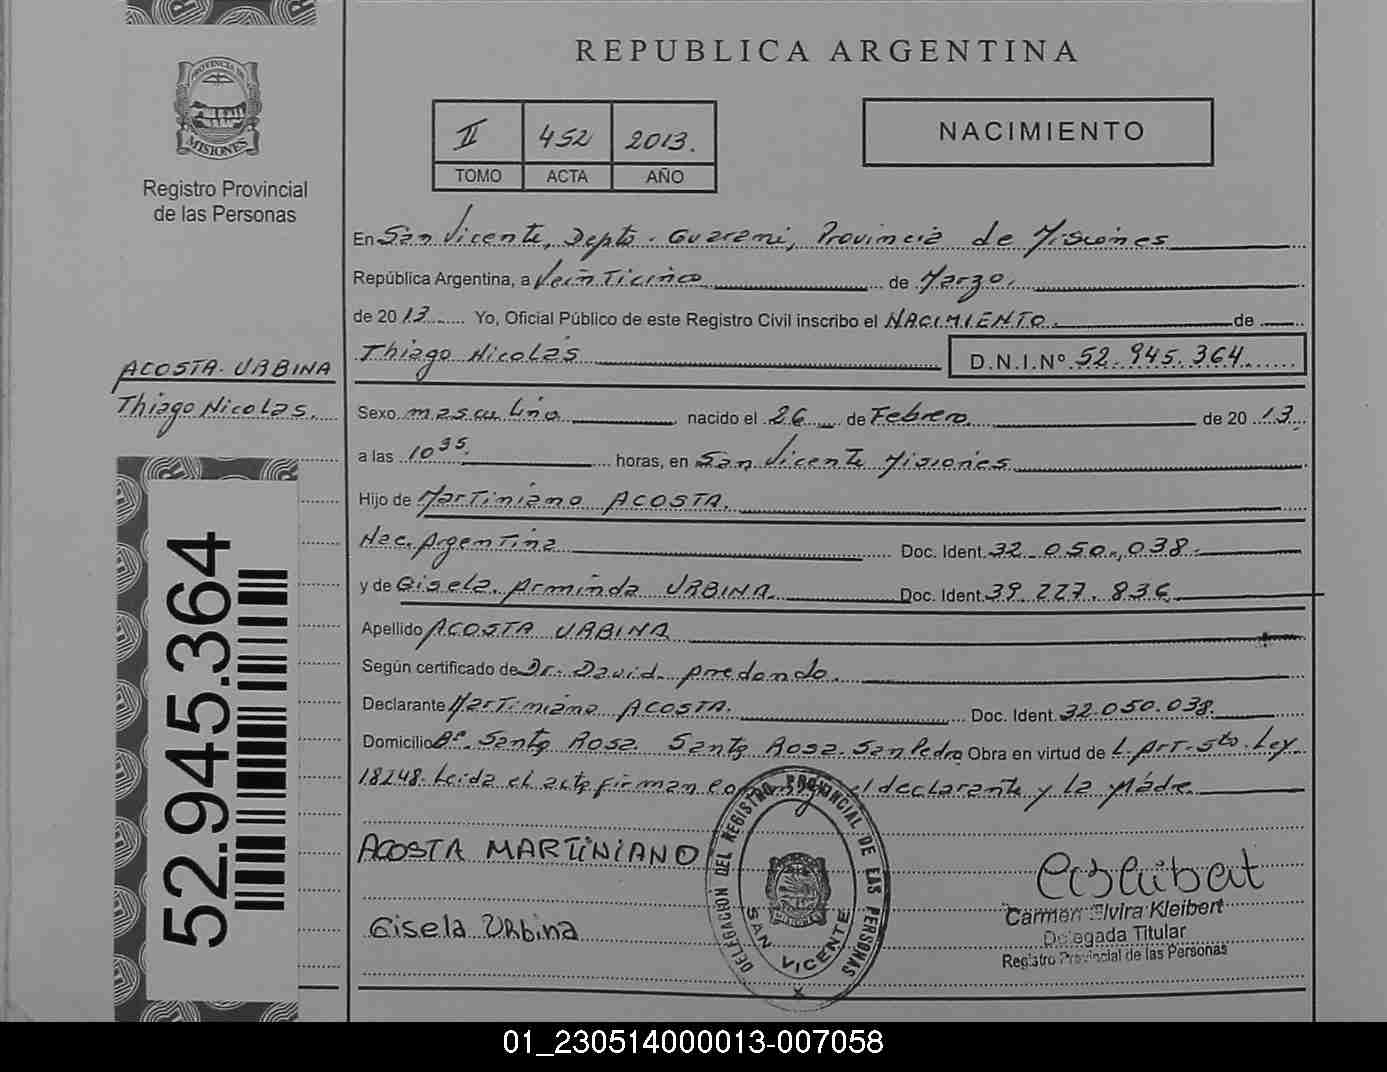 REPUBLICA ARGENTINA
PROVINCIA DE
MISIONES
Registro Provincial
de las Personas
II 452 2013.
TOMO ACTA AÑO
NACIMIENTO
En San Vicente, Depto. Guarani, Provincia de Misiones
República Argentina, a Veinticinco de Marzo.
de 2013 Yo, Oficial Público de este Registro Civil inscribo el NACIMIENTO de
Thiago Nicolás D.N.I.Nº 52.945.364
ACOSTA URBINA
Thiago Nicolas.
Sexo masculino nacido el 26 de Febrero de 2013.
a las 10 35. horas, en San Vicente Misiones
Hijo de Martiniano ACOSTA.
Nac. Argentina Doc. Ident. 32.050.038.
y de Gisela Arminda URBINA Doc. Ident. 39.227.836
Apellido ACOSTA URBINA
Según certificado de Dr. David Arredondo.
Declarante Martiniano ACOSTA. Doc. Ident. 32.050.038.
Domicilio Bº. Santa Rosa. Santa Rosa. San Pedro Obra en virtud de L. Art. 5to. Ley
18248. Leida el acta firman el declarante y la Madre
ACOSTA MARTINIANO
Gisela Urbina
DELEGACION DEL REGISTRO PROVINCIAL DE LAS PERSONAS
SAN VICENTE
MISIONES
Carmen Elvira Kleibert
Delegada Titular
Registro Provincial de las Personas
52.945.364
01_230514000013-007058